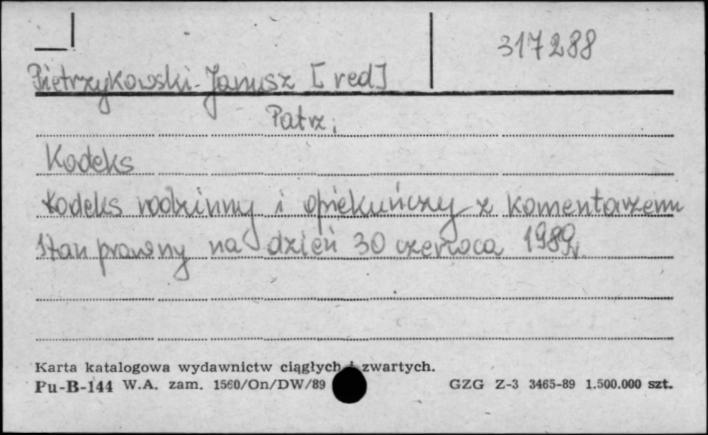 317288
Pietrzykowski Janusz [red]
Patrz:
Kodeks
Kodeks rodzinny i opiekuńczy z komentarzem
Stan prawny na dzień 30 czerwca 1989r.
Karta katalogowa wydawnictw ciągłych i zwartych.
Pu-B-144 W.A. zam. 1560/On/DW/89 GZG Z-3 3465-89 1.500.000 szt.